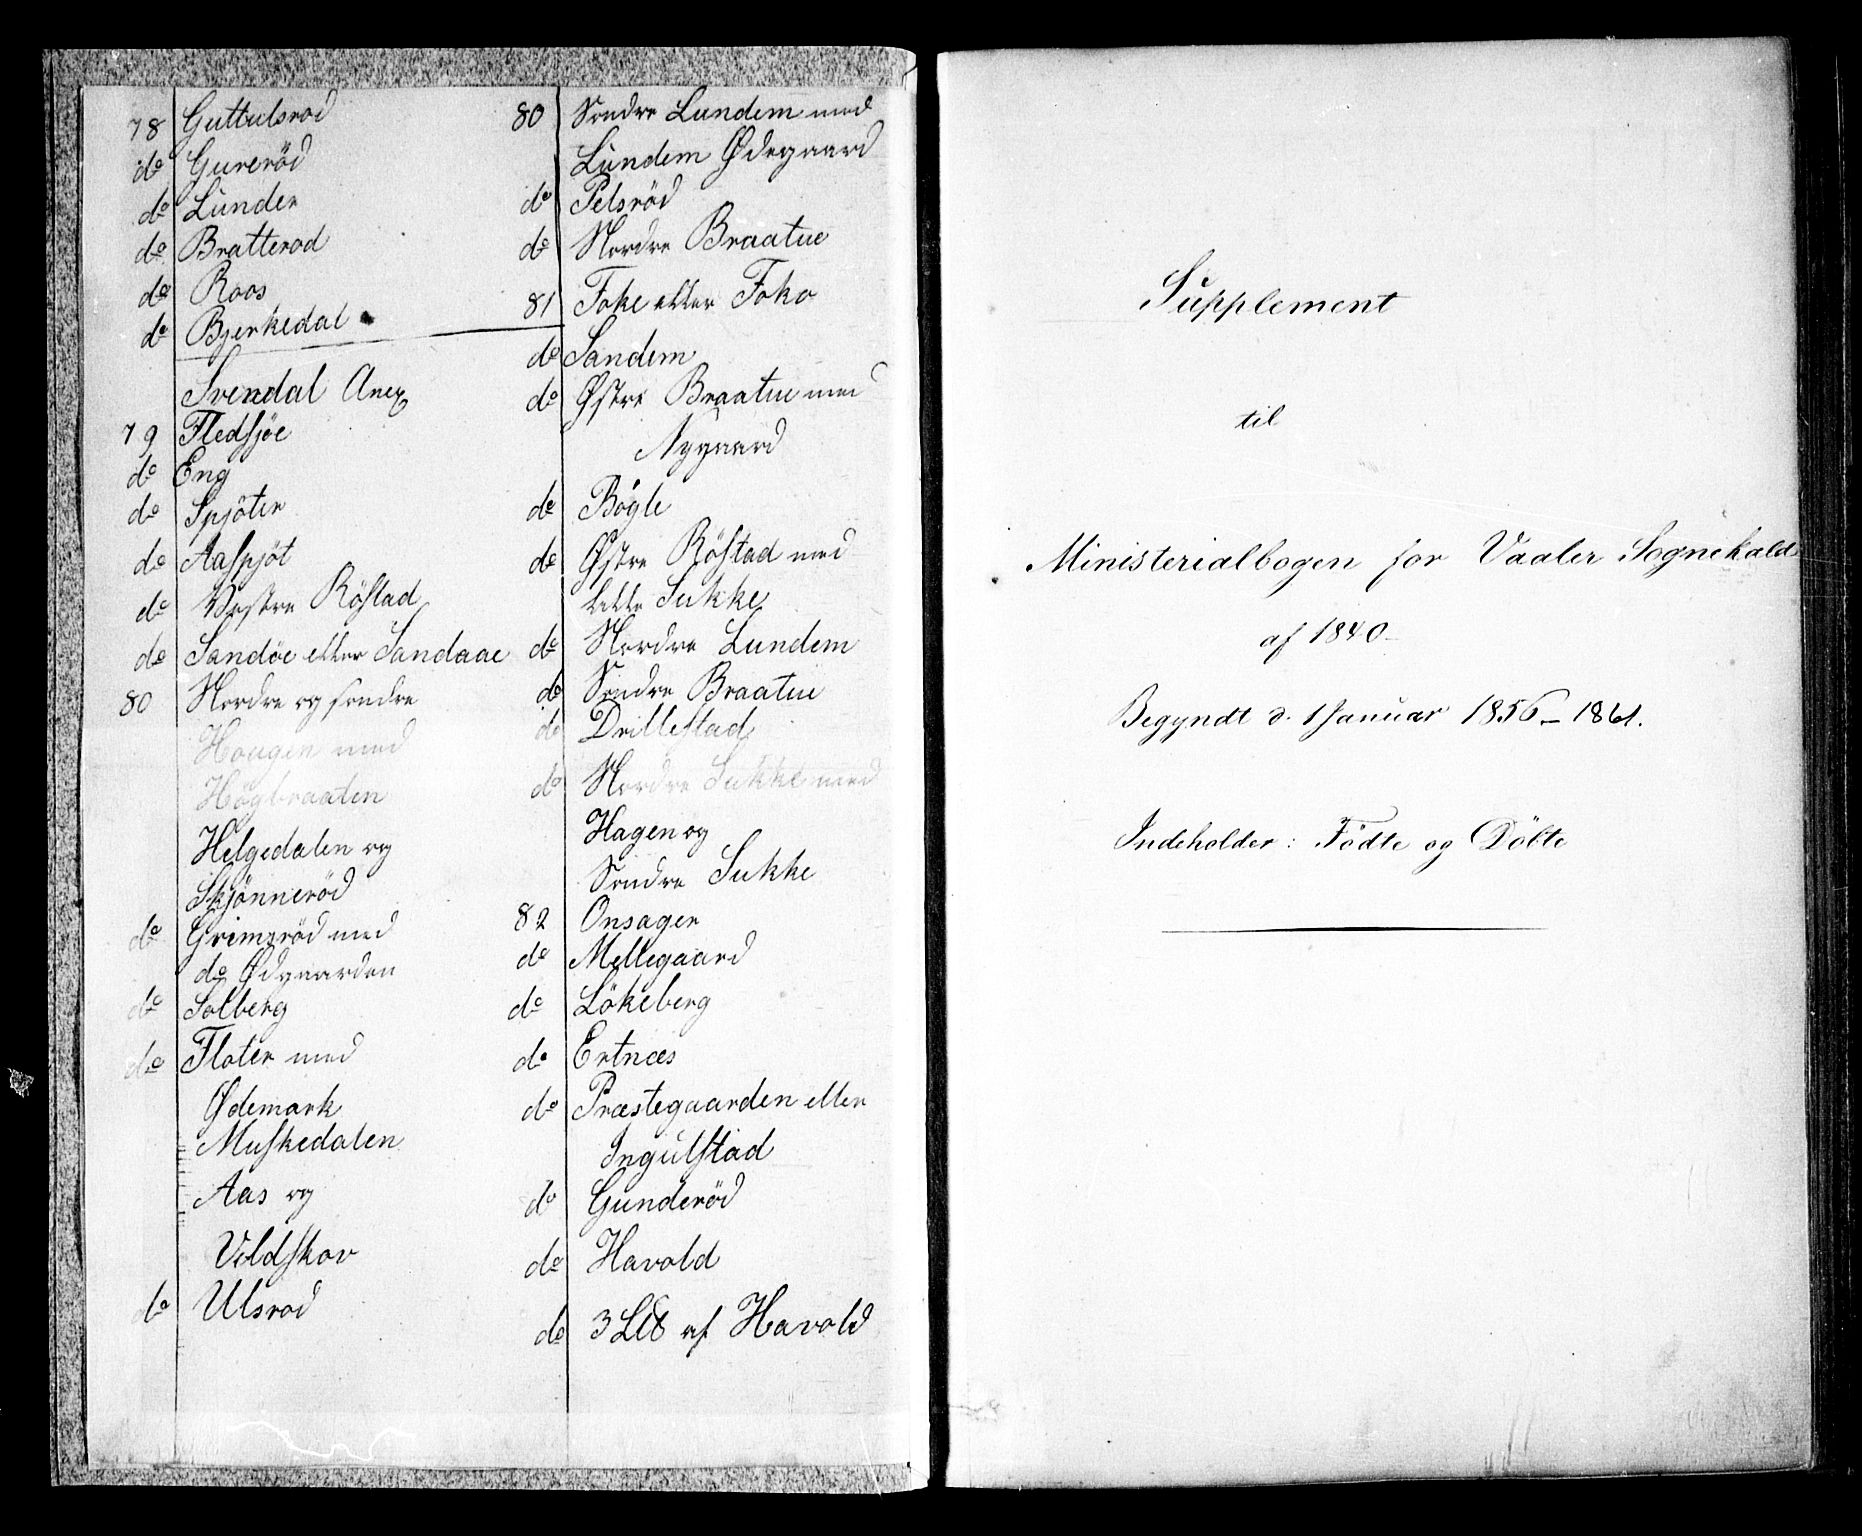 78 Guttulsrod
do Gureröd
do Lunder
do Bratterod
do Roos
do Bjerkedal
Svendal Anex
79 Fledsjöe
do Eng
do Spjöter
do Aaspjöt
do Vestre Röstad
do Sandöe eller Sandaae
80 Nordre og söndre
Hougen med
Högbraaten
Helgedalen og
Skjönneröd
do Grimsröd med
do Ødegaarden
do Solberg
do Floter med
Ødemark
Muskedalen
Aas og
Vildskov
do Ulsrod
80 Söndre Lundem med
Lundem Ødegaard
do Pelsröd
do Nordre Braatue
81 Foke eller Foko
do Sandem
do Østre Braatue med
Nygaard
do Bögle
do Østre Röstad med
lille Sukke
do Nordre Lundem
do Söndre Braatue
do Drillestad
do Nordre Sukke med
Hagen og
Söndre Sukke
82 Onsager
do Mellegaard
do Lökeberg
do Ertnæs
do Præstegaarden eller
Ingulstad
do Gunderöd
do Havold
do 3 af Havold
Supplement
til
Ministerialbogen for Vaaler Sognekald
af 1840
Begyndt d. 1 Januar 1856 - 1861.
Indeholder: Födte og Döbte